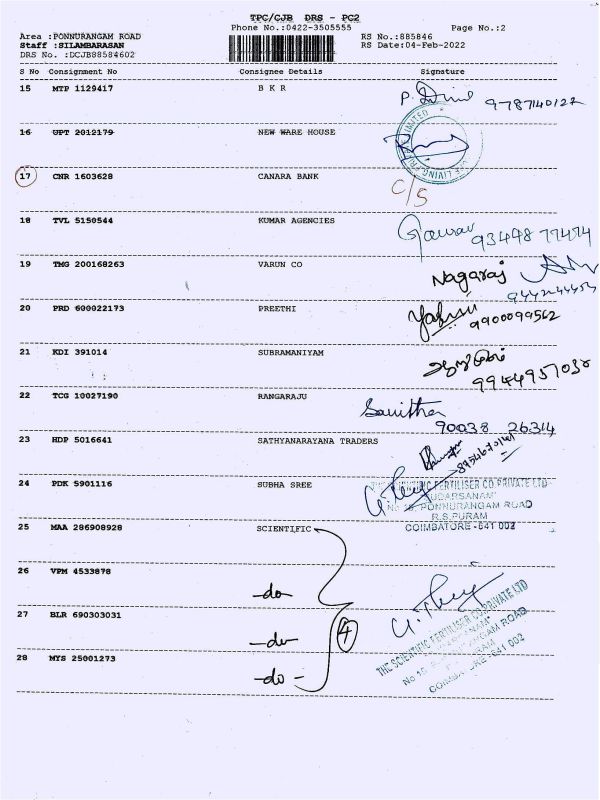 TPC/CJB DRS - PC2
Phone No.:0422-3505555 Page No.:2
Area :PONNURANGAM ROAD RS No.:885846
Staff :SILAMBARASAN RS Date:04-Feb-2022
DRS No. :DCJB88584602
S No Consignment No Consignee Details Signature
15 MTP 1129417 B K R 9787140122
16 UPT 2012179 NEW WARE HOUSE
17 CNR 1603628 CANARA BANK C/S
18 TVL 5150544 KUMAR AGENCIES
19 TMG 200168263 VARUN CO Nagaraj
20 PRD 600022173 PREETHI 9900099562
21 KDI 391014 SUBRAMANIYAM
22 TCG 10027190 RANGARAJU Savitha
90038 26314
23 HDP 5016641 SATHYANARAYANA TRADERS
24 PDK 5901116 SUBHA SREE
THE SCIENTIFIC FERTILISER CO.PRIVATE LTD
"SUDARSANAM"
No 15, PONNURANGAM ROAD
R.S.PURAM
COIMBATORE -641 002
25 MAA 286908928 SCIENTIFIC
26 VPM 4533878 -do-
27 BLR 690303031 -do- 4
28 MYS 25001273 -do-
THE SCIENTIFIC FERTILISER CO.PRIVATE LTD